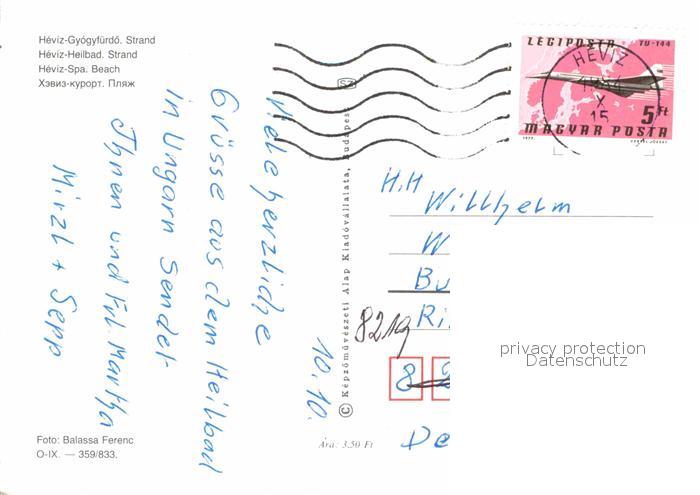 Hévíz-Gyógyfürdő. Strand
Hévíz-Heilbad. Strand
Hévíz-Spa. Beach
Хэвиз-курорт. Пляж
LÉGIPOSTA TU-144
HÉVÍZ
X
15
5 Ft
MAGYAR POSTA
1977.
SZ
10.10.
Viele herzliche
Grüsse aus dem Heilbad
in Ungarn Sendet
Ihnen und Frl. Martha
Mirzl + Sepp
© Képzőművészeti Alap Kiadóvállalata, Budapest
H.H Willhelm
W
Bu
8219 Ri
8 2
De
privacy protection
Datenschutz
Foto: Balassa Ferenc
O-IX. — 359/833.
Ára: 3.50 Ft